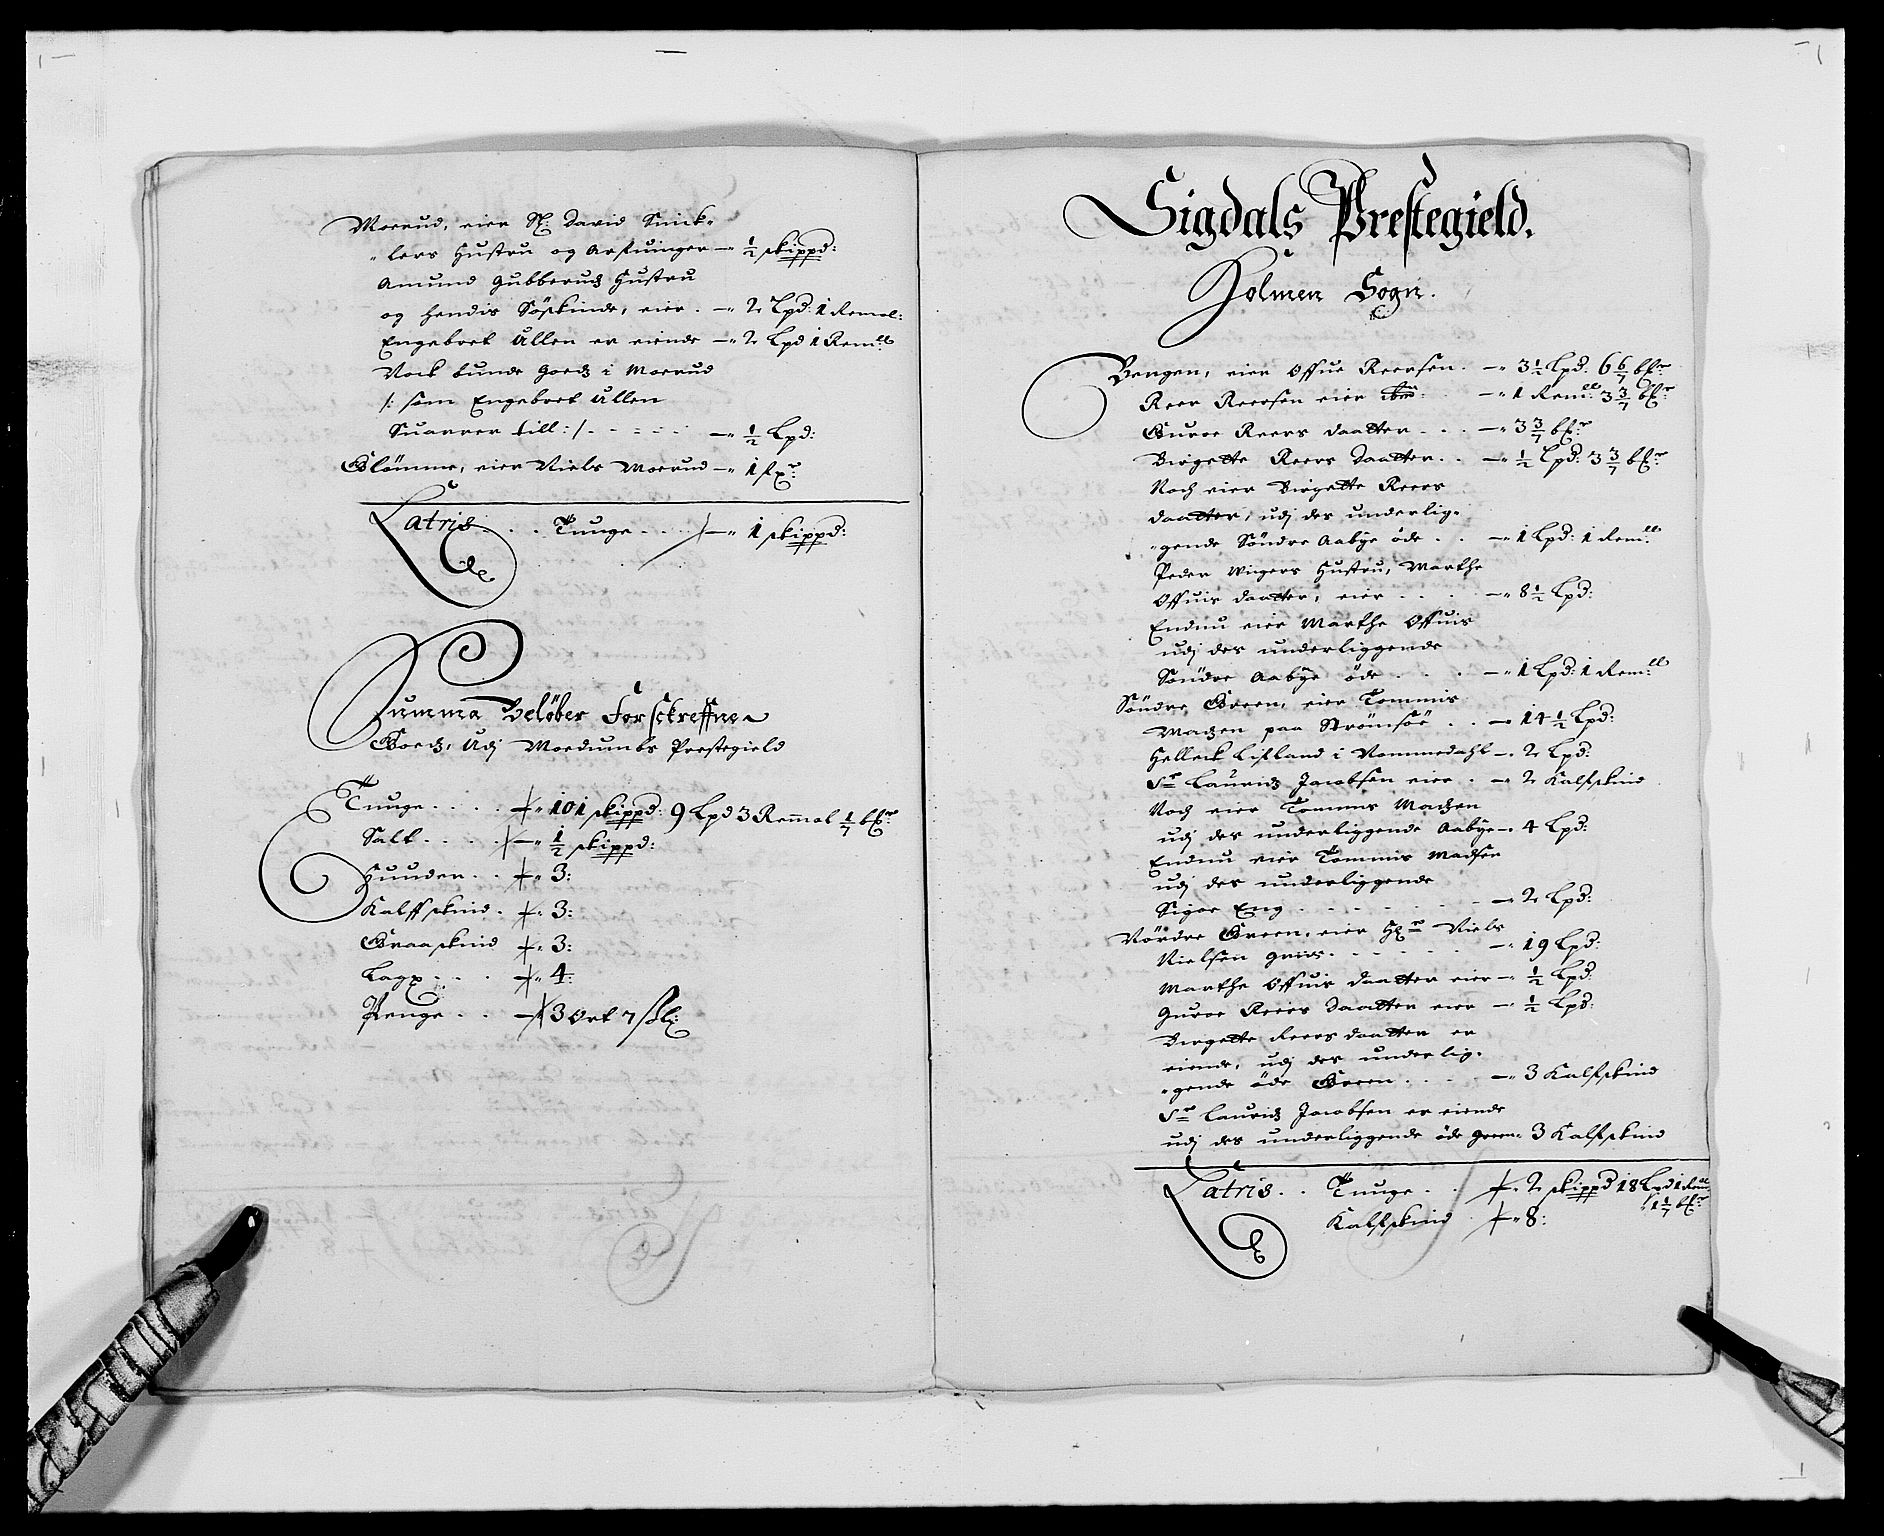 Moerud, eier Sl: David Snick-
-lers Hustru og Arfuinger — ½ skippd:
Amund Gubberudz Hustru
og hendis Söskinde, eier . — 2 Lpd: 1 Remol:
Engebret Ållen er eiende — 2 Lpd 1 Remll
Nock bunde Goedz i Moerud
/: som Engebret Ållen
Suarrer till :/ - - - - - — ½ Lpd:
Glömme, eier Niels Moerud —
Latris . . Tunge . . . — 1 skippd:
Summa Beløber Forsckreffne
Goedz, Udj Moedumbs Prestegield
Tunge . . . . 101 skippd: 9 Lpd 3 Remol 1/7 bfr
Salt . . . . — ½ skippd:
Huuder . . 3:
Kalffskind . 3:
Graaskind 3:
Lax . . . 4:
Penge . . — 3 Ort 7 sl:
Sigdals Prestegield.
Holmen Sogn.
Bergen, eier Offue Reersen . — 3½ Lpd: 6 6/7 bfr
Reer Reersen eier ibm: — 1 Remll: 3 3/7 bfr
Guroe Reers daatter . . . — 3 3/7 bfr
Birgette Reers Daatter . . — ½ Lpd: 3 3/7 bfr
Noch eier Birgette Reers
daatter, udj des underlig-
-gende Söndre Aabye öde . . — 1 Lpd: 1 Remll
Peder Wigers Hustru, Marthe
Offuis daatter, eier . . . — 8½ Lpd:
Endnu eier Marthe Offuis
udj des underliggende
Söndre Aabye öde . . . — 1 Lpd: 1 Remll
Söndre Green, eier Tommis
Madzen paa Strömsöe . . — 14½ Lpd:
Helleck Lifland i Nommedahl — 2 Lpd:
Sr Lauridz Jacobsen eier . — 2 Kalfskind
Noch eier Tommis Madzen
udj des underliggende Aabye — 4 Lpd:
Endnu eier Tommis Madsen
udj des underliggende
Sigor Eng . - - - - — 2 Lpd:
Nördre Green, eier Hr Niels
Nielsen Griis . - - - - — 19 Lpd:
Marthe Offuis daatter eier — ½ Lpd:
Guroe Reers Daatter eier — ½ Lpd:
Birgette Reers daatter er
eiende, udj des underlig-
-gende öde Green . . . — 3 Kalfskind
Sr Lauridz Jacobsen er eiende
udj des underliggende öde Green — 3 Kalfskind
Latris . . Tunge . . 2 skippd 18 Lpd 1 Remll
1 1/7 bfr
Kalfskind 8: